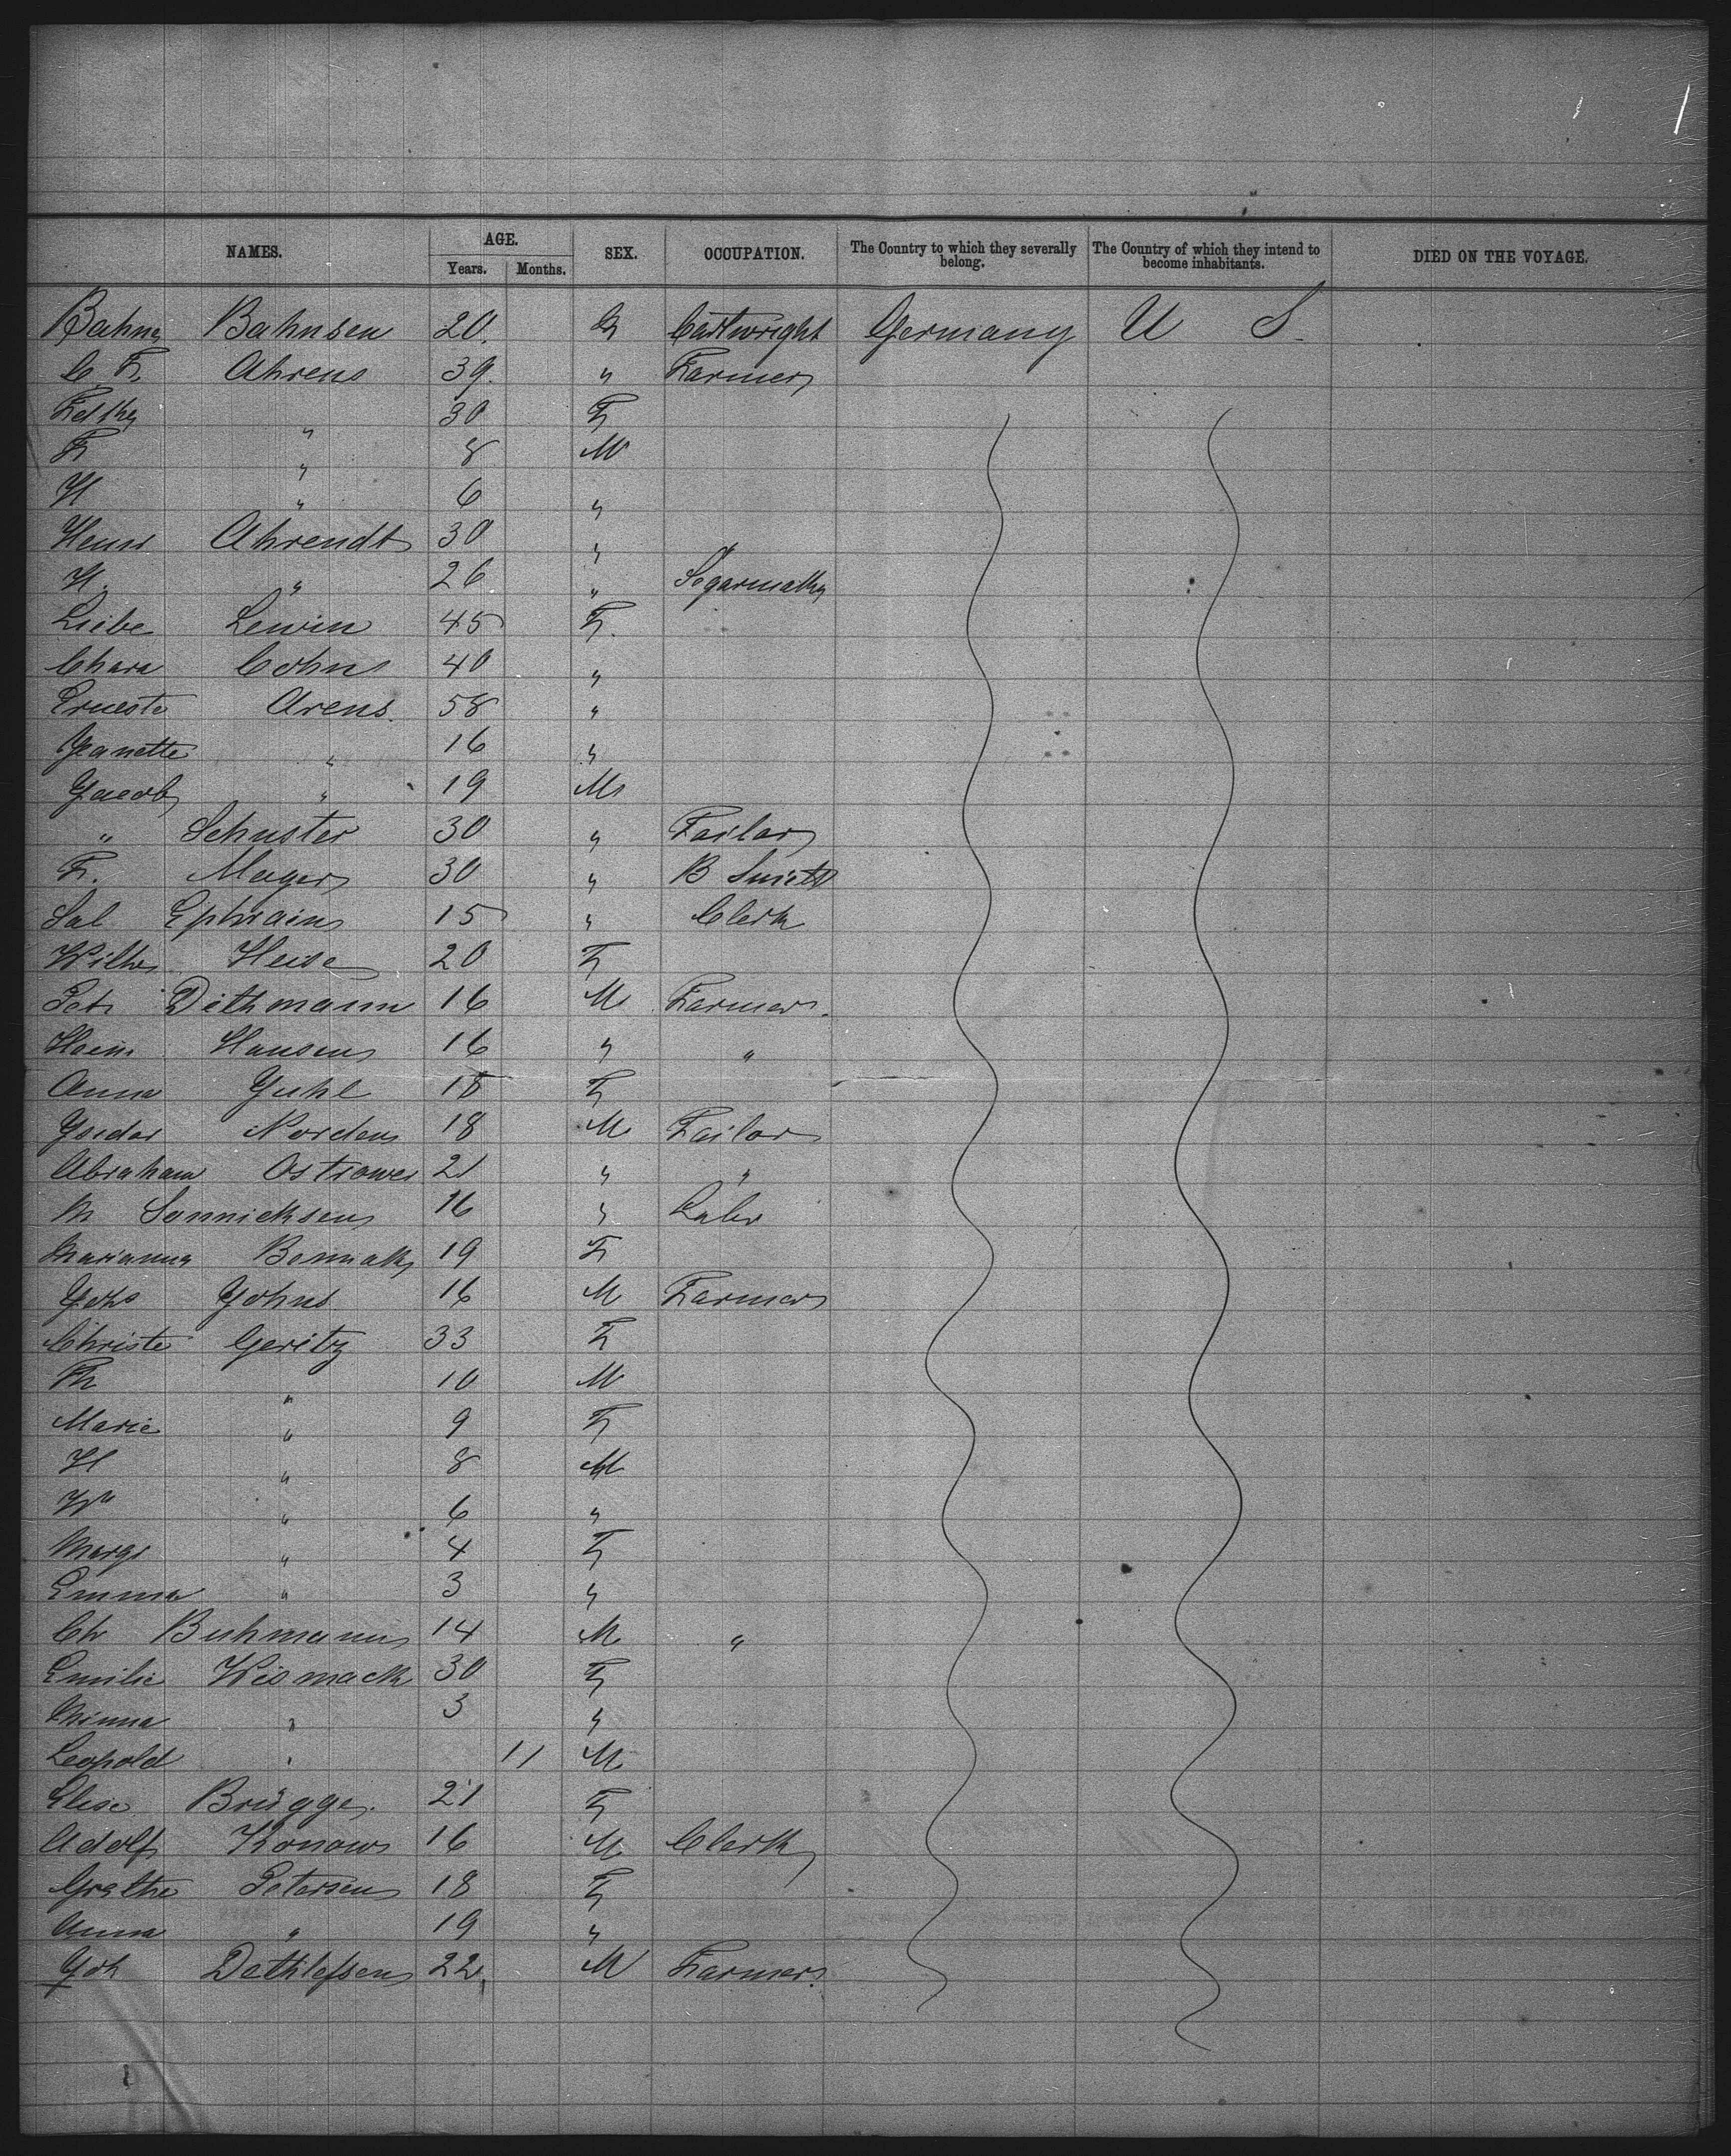 NAMES. AGE. SEX. OCCUPATION. The Country to which they severally belong. The Country of which they intend to become inhabitants. DIED ON THE VOYAGE.
Years. Months.
Bahne Bahnsen 20. Cartwright Germany U S.
C. F. Ahrens 39. " Farmer
" 30 F
F " 8 M
H " 6 "
Heinr Ahrendt 30 "
H. " 26 " Segarmaker
Liebe Lewin 45 F.
Chara Cohn 40 "
Erneste Arens. 58 "
Jeanette " 16 "
Jacob " 19 M
" Schuster 30 " Tailor
F. Mayer 30 " B Smith
Sal Ephraim 15 " Clerk
Wilhe Heise 20 F
Petr Dethmann 16 M Farmer.
Hein Hansen 16 " "
Anna Juhl 18 F
Isidor Norden 18 M Tailor
Abraham Ostrower 21 " "
M Sonnichsen 16 " Labr
Marianna 19 F
Johs Johns 16 M Farmer
Christe Geritz 33 F
Th " 10 M
Marie " 9 F
H " 8 M
Wm " 6 "
Margr " 4 F
Emma " 3 "
Chr Buhmann 14 M "
Emilie Wismack 30 F
Minna " 3 "
Leopold " 11 M
Elise Brügge. 21 F
Adolf Konow 16 M Clerk
Grethe Petersen 18 F
Anna " 19 "
Joh Dethlefsen 22 M Farmer.